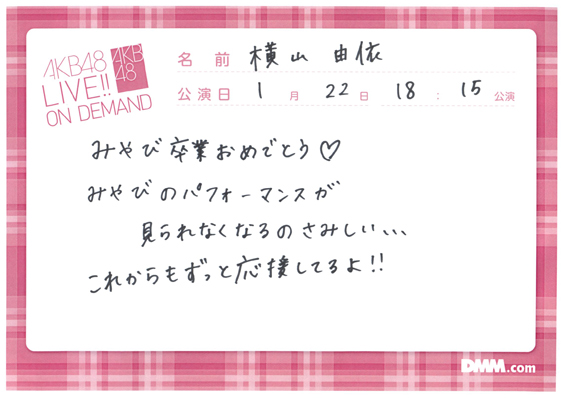 AKB48
LIVE!!
ON DEMAND
AKB
48
名前 横山 由依
公演日 1月 22日 18:15公演
みやび卒業おめでとう♡
みやびのパフォーマンスが
見られなくなるのさみしい、、、
これからもずっと応援してるよ!!
DMM.com